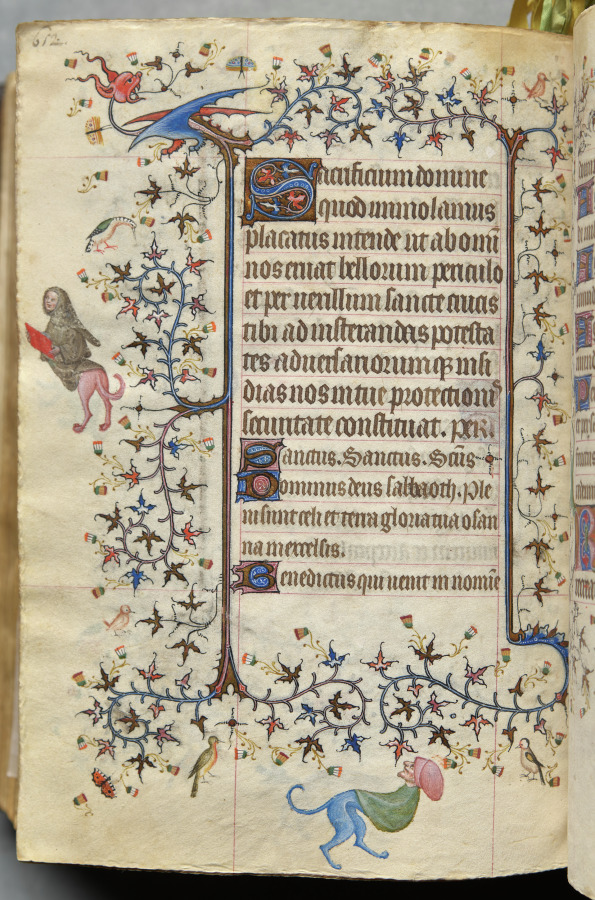 Sacrificium domine
quod immolamus
placatus intende ut ab omī
nos eruat bellorum periculo
et per uexillum sancte crucis
tibi ad insterandas potesta
tes aduersariorum q̄ insi
dias nos in tue protectionis
securitate constituat. per.
Sanctus. Sanctus. Scūs
Dominus deus sabbaoth. Ple
ni sunt celi et terra gloria tua osan
na in excelsis.
Benedictus qui uenit in nomīe